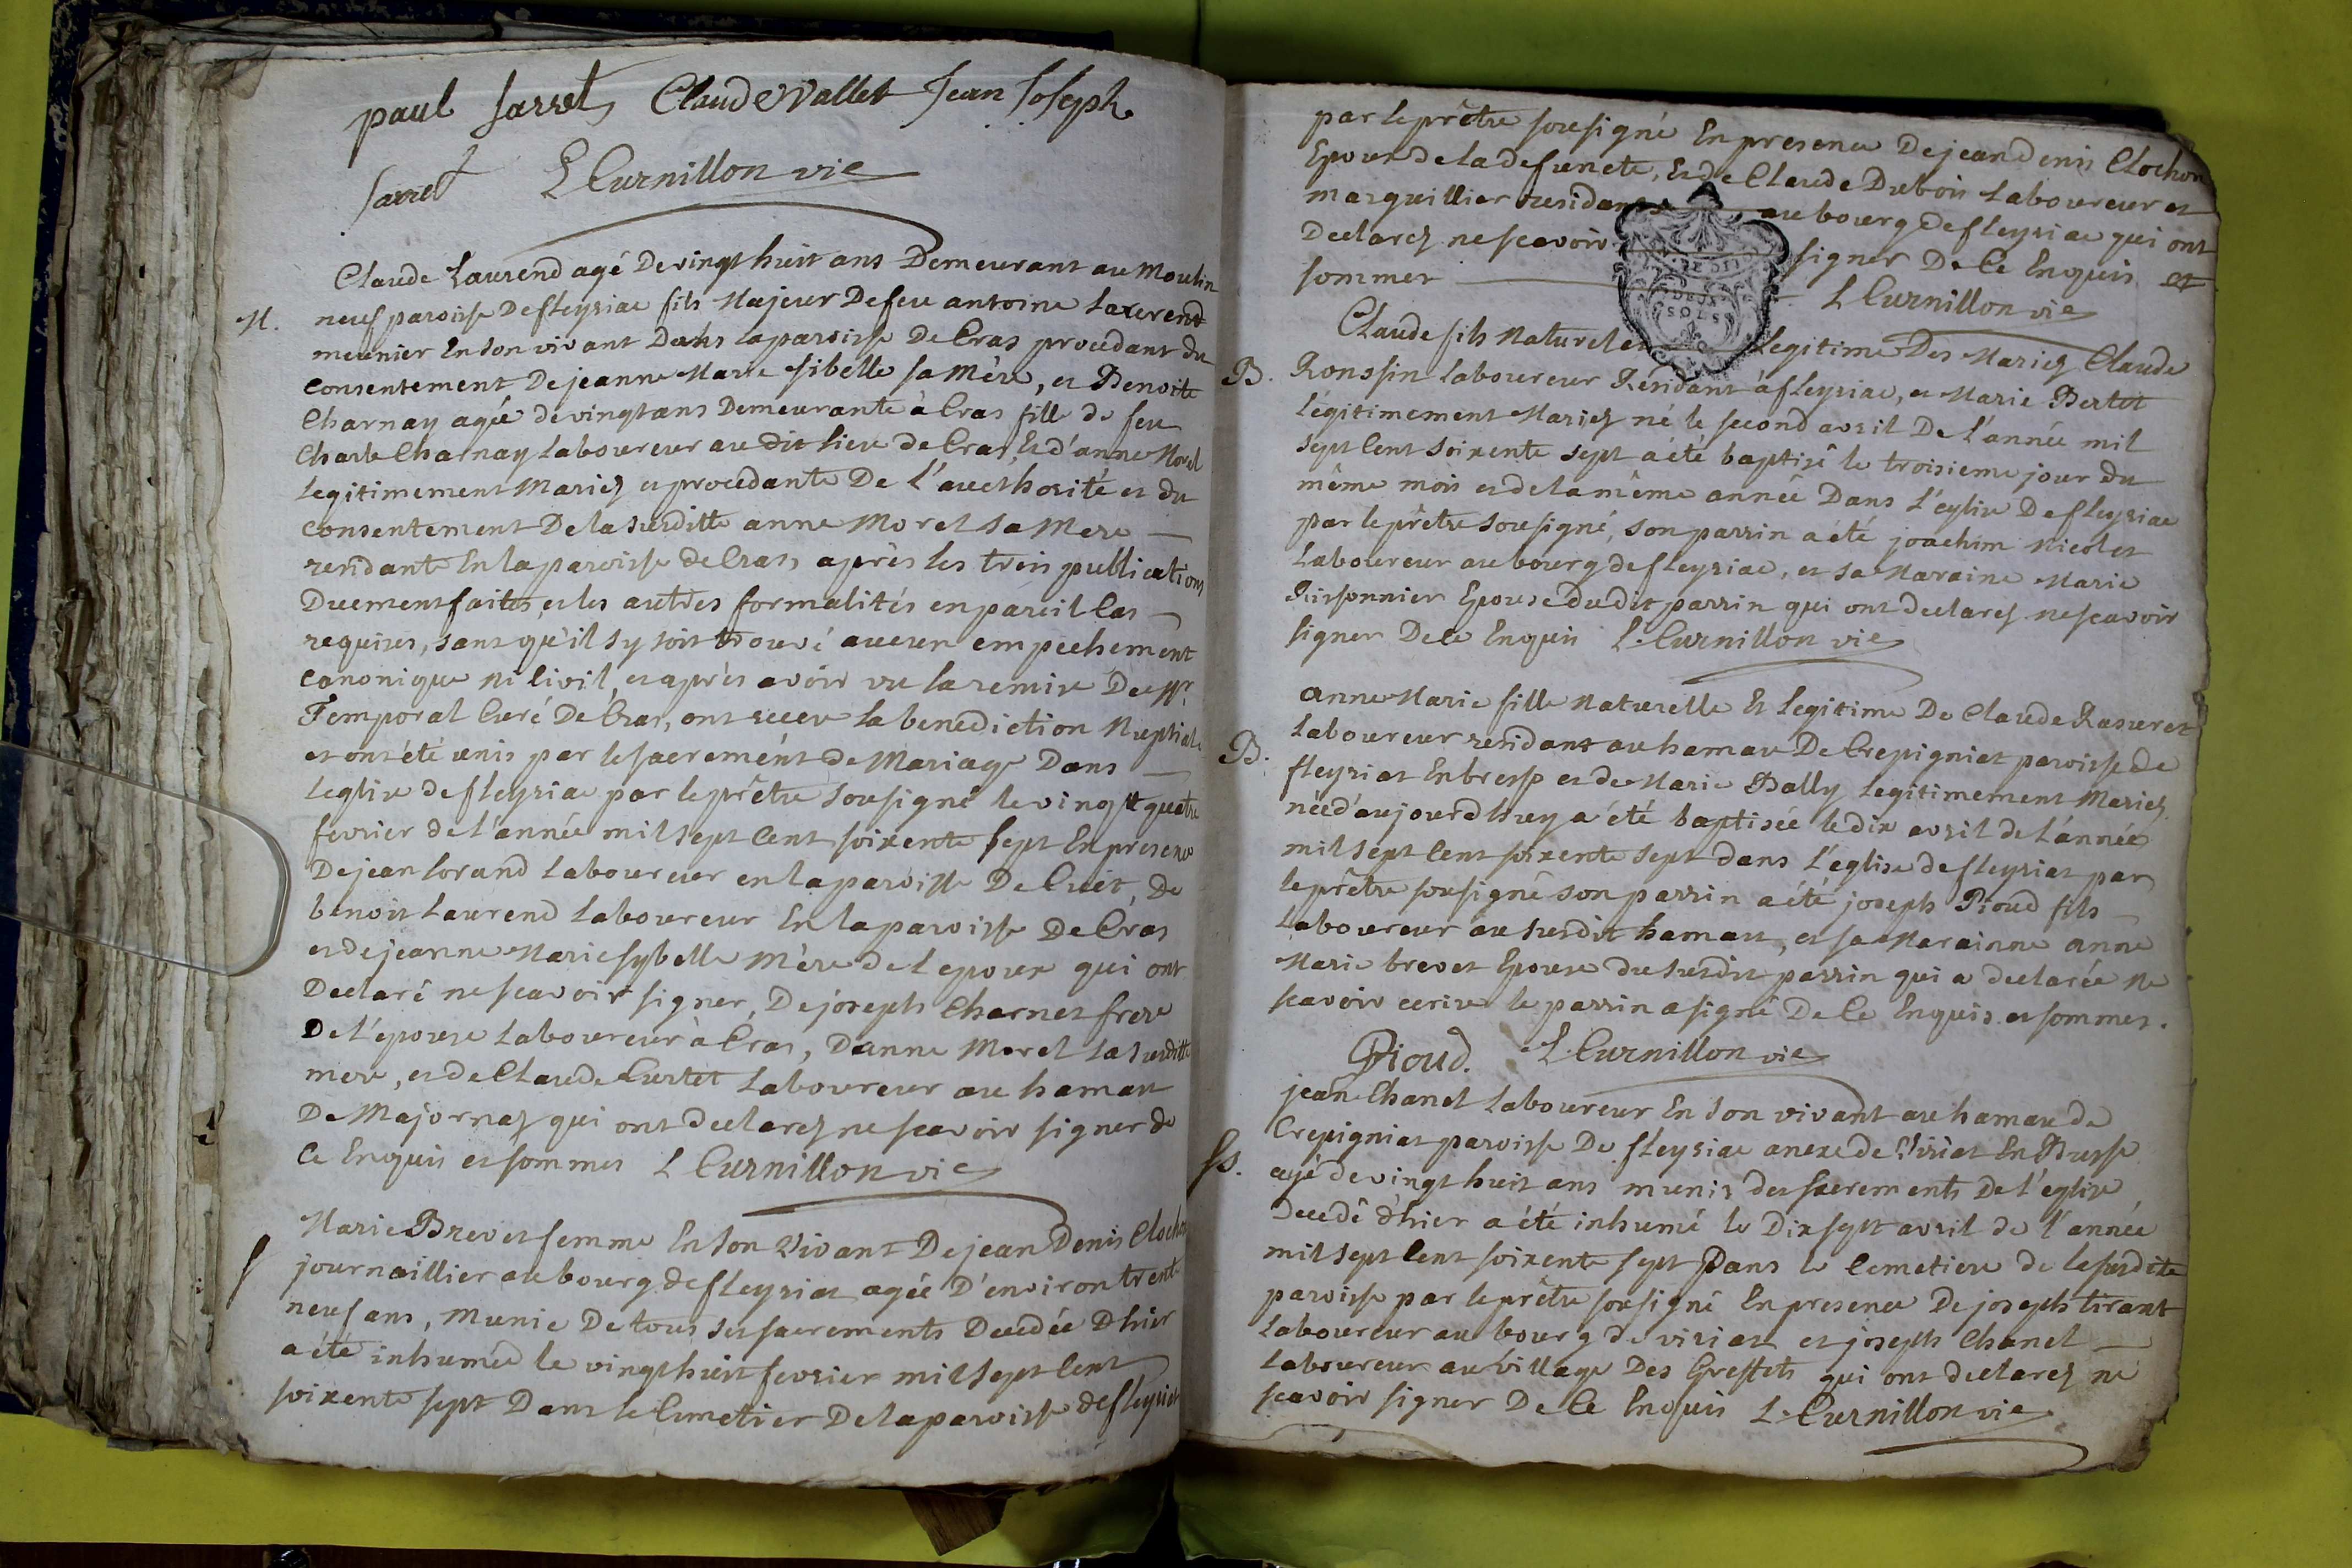 paul Sarret Claude Vallet Jean Joseph
Sarret L Curnillon vic
Claude Laurend agé De vingt huit ans Demeurant au Moulin
M. neuf paroisse De fleyriac fils Majeur De feu antoine Laurend
meunier En son vivant Dans la paroisse De Cras procedant du
consentement De jeanne Marie Sibelle sa Mère, et Benoite
Charnay agée de vingt ans Demeurante à Cras fille de feu
Charle Charnay Laboureur au dit lieu de Cras, Et d'anne Morel
Legitimement Mariez et procedante De L'aucthorité et du
consentement De la susditte anne Morel sa Mere
residante En la paroisse de Cras, après les trois publications
Duement faites, et les autres formalités en pareil Cas
requises, sans qu'il sy soit trouvé aucun empechement
canonique ni Civil, et après avoir vu la remise De Mr
Temporal Curé De Cras, ont recu la benediction Nuptiale
et ont été unis par le sacrement de Mariage Dans
Leglise de fleyriac par le prêtre sousigné le vingt quatre
fevrier de l'année mil sept Cent soixente sept En presence
De jean Lorand Laboureur en la paroisse De Cuet, De
benoit Laurend Laboureur En la paroisse De Cras
et de jeanne Marie sybelle Mère de l epoux qui ont
Declaré ne scavoir signer, De joseph Charnet frere
De L'epouse Laboureur à Cras, D'anne Morel la susditte
mere, et de Claude Curtet Laboureur au hamau
De Majornas qui ont declarez ne scavoir signer de
Ce Enquis et sommes L Curnillon vic
Marie Brevet femme En son Vivant De jean Denis Clochon
journaillier au bourg de fleyriat agée D'environ trente
neuf ans, Munie De tous ses sacrements Decedée D hier
a été inhumée le vingt huit fevrier mil sept Cent
soixente sept Dans le Cimetier De la paroisse de fleyriat
par le prêtre sousigné En presence De jean denis Clochon
Epoux de la defuncte, Et de Claude Dubois Laboureur et
marguillier residants au bourg de fleyriac qui ont
Declarez ne scavoir signer De Ce Enquis et
sommer L Curnillon vic
DEUX
SOLS
Claude fils Naturel et legitime Des Mariez Claude
B. Ronssin laboureur Résidant à fleyriac, et Marie Bertet
Légitimement Mariez né le second avril De l'année mil
sept Cent soixente sept a été baptisé le troisieme jour du
même mois et de la même année Dans l'eglise De fleyriac
par le prêtre sousigné, son parrin a été joachim Nicolet
Laboureur au bourg de fleyriac, et sa Maraine Marie
Epouse du dit parrin qui ont declarez ne scavoir
signer De Ce Enquis L. Curnillon vic
Anne Marie fille Naturelle Et Legitime De Claude Rasuret
B. Laboureur residant au hamau De Crepigniat paroisse de
fleyriat En bresse et de Marie Bally Legitimement Mariez
née d'aujourdhuy a été baptisée le dix avril de l'année
mil sept Cent soixente sept dans l'eglise de fleyriat par
le prêtre sousigné son parrin a été joseph Pioud fils
Laboureur au susdit hamau, et sa Marainne anne
Marie brevet Epouse du susdit parrin qui a declarée ne
scavoir ecrire le parrin a signé De Ce Enquis et sommer.
Pioud. L Curnillon vic
jean Chanel Laboureur En son vivant au hamau de
Crepigniat paroisse De fleyriac anexe de Viriat En Bresse
Ss. agé de vingt huit ans munis des sacrements De l'eglise
Decedé d'hier a été inhumé le Dix sept avril de l'année
mil sept Cent soixente sept Dans le Cemetiere de la susdite
paroisse par le prêtre sousigné En presence De joseph tirant
Laboureur au bourg de viriat et joseph Chanel
Laboureur au Village Des Greffets qui ont declarez ne
scavoir signer De Ce Enquis L. Curnillon vic